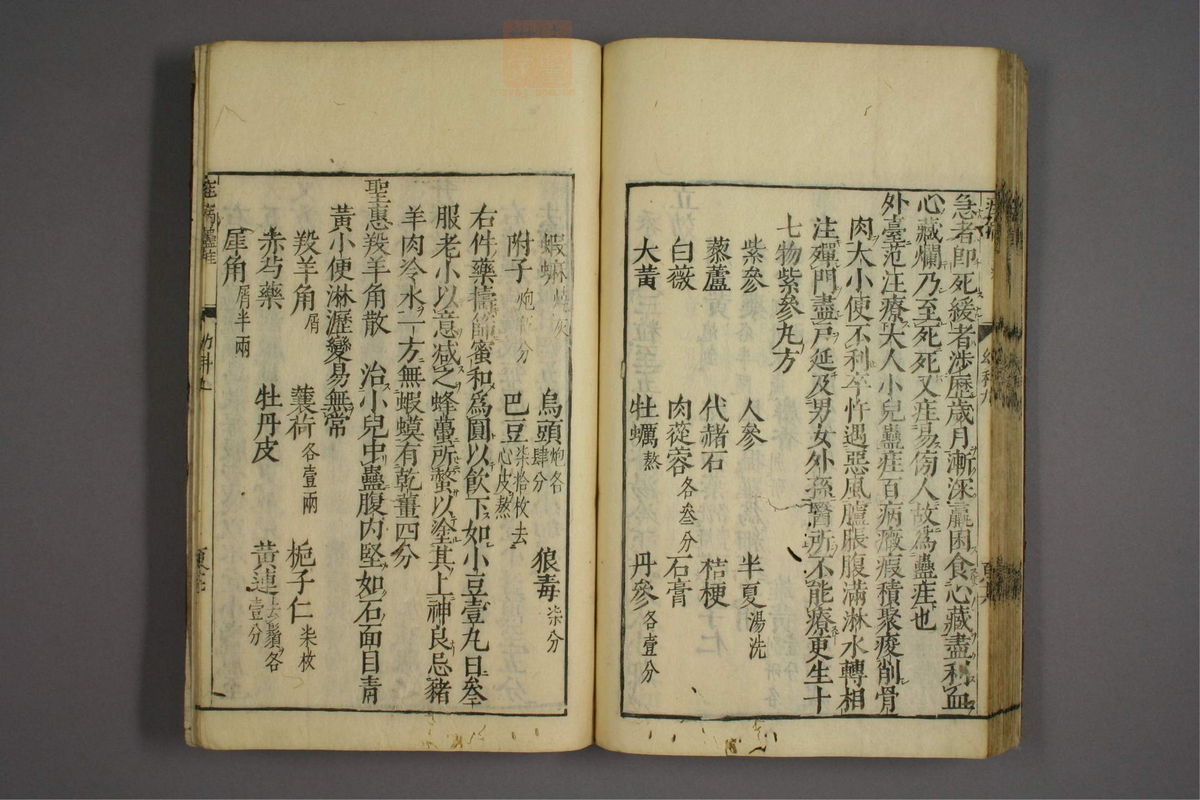 急者即死緩者涉歷歲月漸深羸困食心藏盡利血
心藏爛乃至死死又疰易傍人故為蠱疰也
外臺范汪療大人小兒蠱疰百病癥瘕積聚痠削骨
肉大小便不利卒忤遇惡風臚脹腹滿淋水轉相
注殫門盡戶延及男女外孫醫所不能療更生十
七物紫參丸方
紫參 人參 半夏湯洗
藜蘆 代赭石 桔梗
白薇 肉蓯蓉各叁分 石膏
大黃 牡蠣熬 丹參各壹分
蝦蟇燒灰 烏頭炮各肆分 狼毒柒分
附子炮 分 巴豆柒拾枚去心皮熬
右件藥擣篩蜜和為圓以飲下如小豆壹丸日叁
服老小以意減之蜂蠆所螫以塗其上神良忌豬
羊肉冷水一方無蝦蟆有乾薑四分
聖惠羖羊角散 治小兒中蠱腹內堅如石面目青
黃小便淋瀝變易無常
羖羊角屑 蘘荷各壹兩 梔子仁柒枚
赤芍藥 牡丹皮 黃連去鬚各壹分
犀角屑半兩